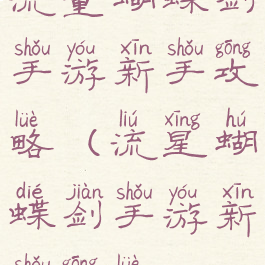 流星蝴蝶剑
shǒu yóu xīn shǒu gōng
手游新手攻
lüè liú xīng hú
略（流星蝴
dié jiàn shǒu yóu xīn
蝶剑手游新
shǒu gōng lüè